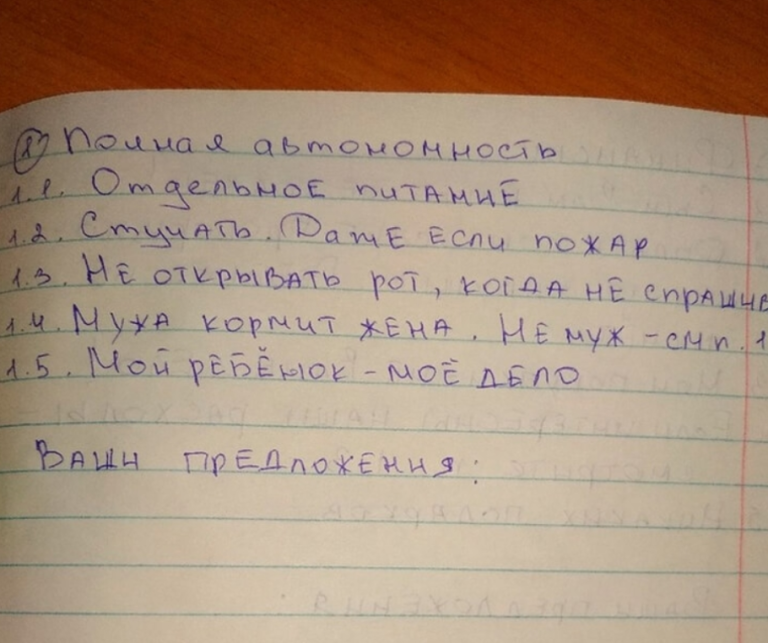 1) Полная автономность
1.1. Отдельное питание
1.2. Стучать. Даже если пожар
1.3. Не открывать рот, когда не спрашив
1.4. Мужа кормит жена. Не муж - см п. 1
1.5. Мой ребёнок - моё дело
Ваши предложения: